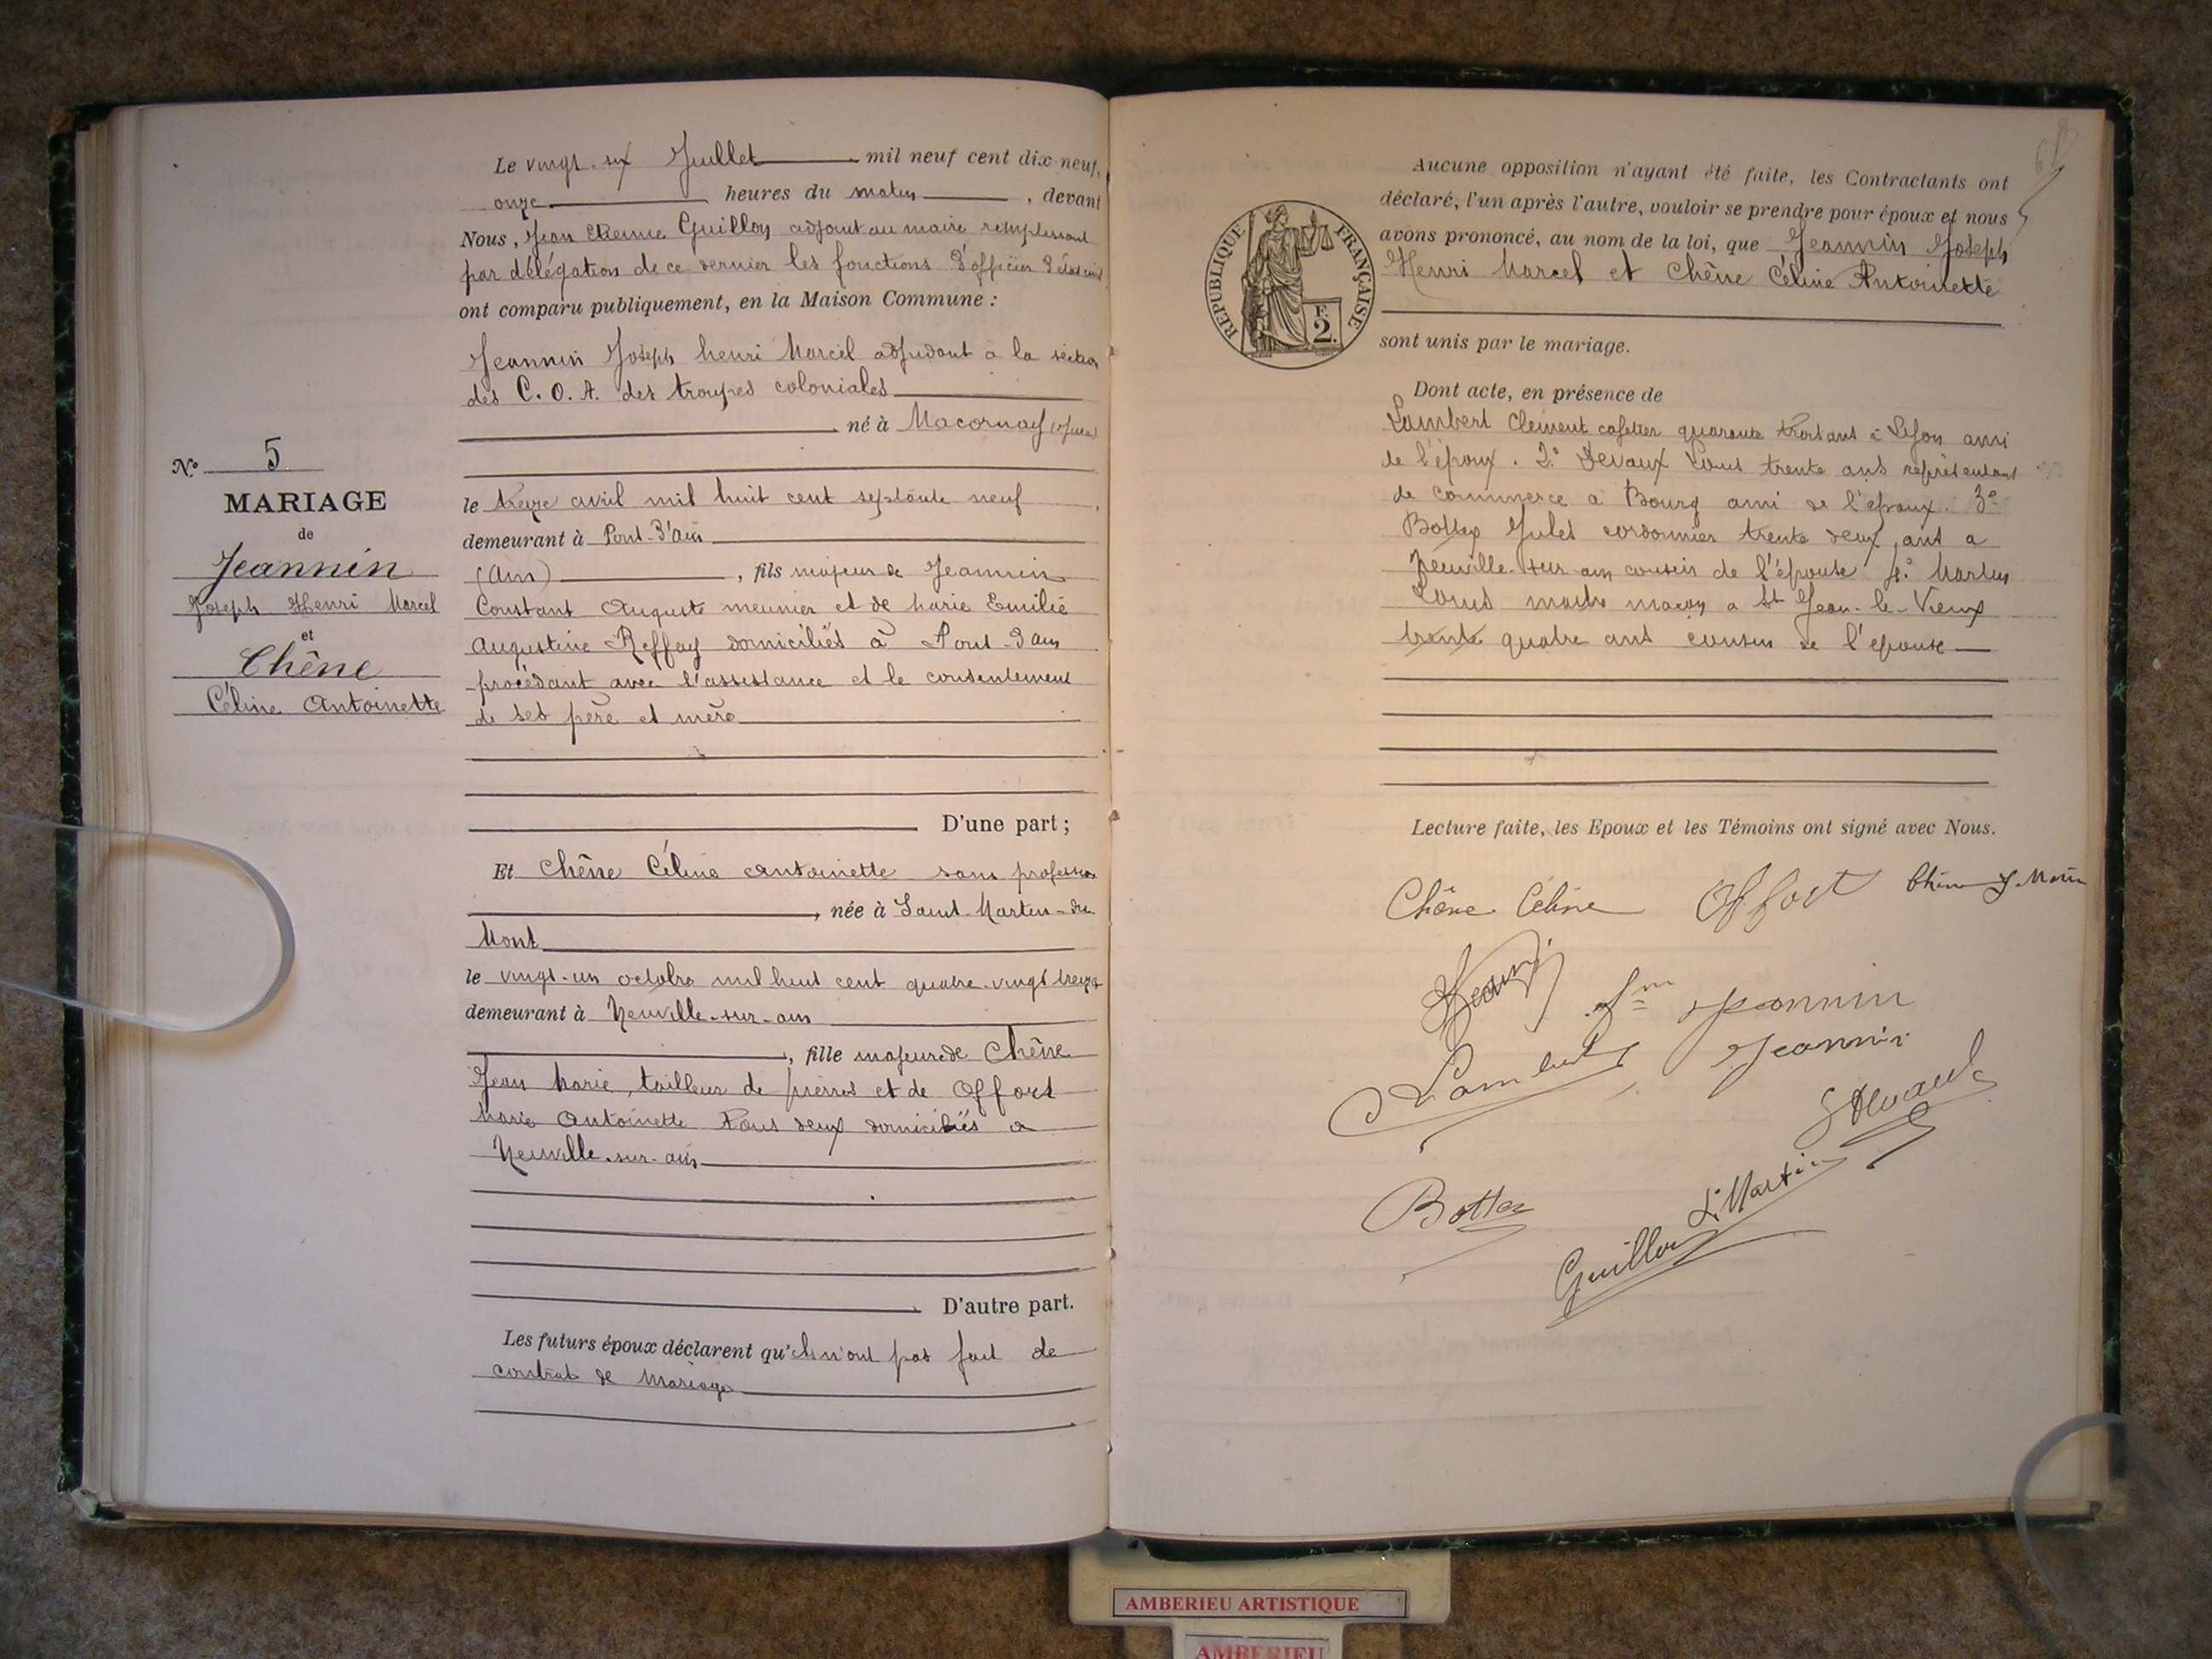 Le vingt-six Juillet mil neuf cent dix-neuf,
onze heures du matin, devant
Nous, Jean Etienne Guillon adjoint au maire remplissant
par délégation de ce dernier les fonctions d'officier d'état civil
ont comparu publiquement, en la Maison Commune :
Jeannin Joseph henri Marcel adjudant a la section
des C. O. A. des troupes coloniales
né à Macornay (Jura)
No 5
MARIAGE
de
Jeannin
Joseph Henri Marcel
et
Chêne
Céline Antoinette
le treize avril mil huit cent septante neuf
demeurant à Pont-d'Ain
(Ain), fils majeur de Jeannin
Constant Auguste meunier et de Marie Emilie
Augustine Reffay domiciliés à Pont-d'ain
procédant avec l'assistance et le consentement
de ses père et mère
D'une part ;
Et Chêne Céline antoinette sans profession
, née à Saint-Martin-du
Mont
le vingt-un octobre mil huit cent quatre-vingt treize
demeurant à Neuville-sur-ain
, fille majeure de Chêne
Jean Marie, tailleur de pierres et de Offort
Marie Antoinette tous deux domiciliés a
Neuville-sur-ain
D'autre part.
Les futurs époux déclarent qu'ils n'ont pas fait de
contrat de mariage
Aucune opposition n'ayant été faite, les Contractants ont
déclaré, l'un après l'autre, vouloir se prendre pour époux et nous
avons prononcé, au nom de la loi, que Jeannin Joseph
Henri Marcel et Chêne Céline Antoinette
sont unis par le mariage.
RÉPUBLIQUE FRANÇAISE
F.
2.
Dont acte, en présence de
Lambert Clément cafetier quarante trois ans à Lyon ami
de l'époux. 2° Devaux Louis trente ans représentant
de commerce a Bourg ami de l'époux. 3°
Bottex Jules cordonnier trente deux ans a
Neuville-sur-ain cousin de l'épouse 4° Martin
Louis maitre maçon a St Jean-le-Vieux
trente quatre ans cousin de l'epouse
Lecture faite, les Epoux et les Témoins ont signé avec Nous.
Chêne Céline Offort Chêne J. Marie
Jeannin
Jeannin
Lambert Jeannin
Devaux
Bottex
L. Martin
Guillon
AMBERIEU ARTISTIQUE
AMBERIEU